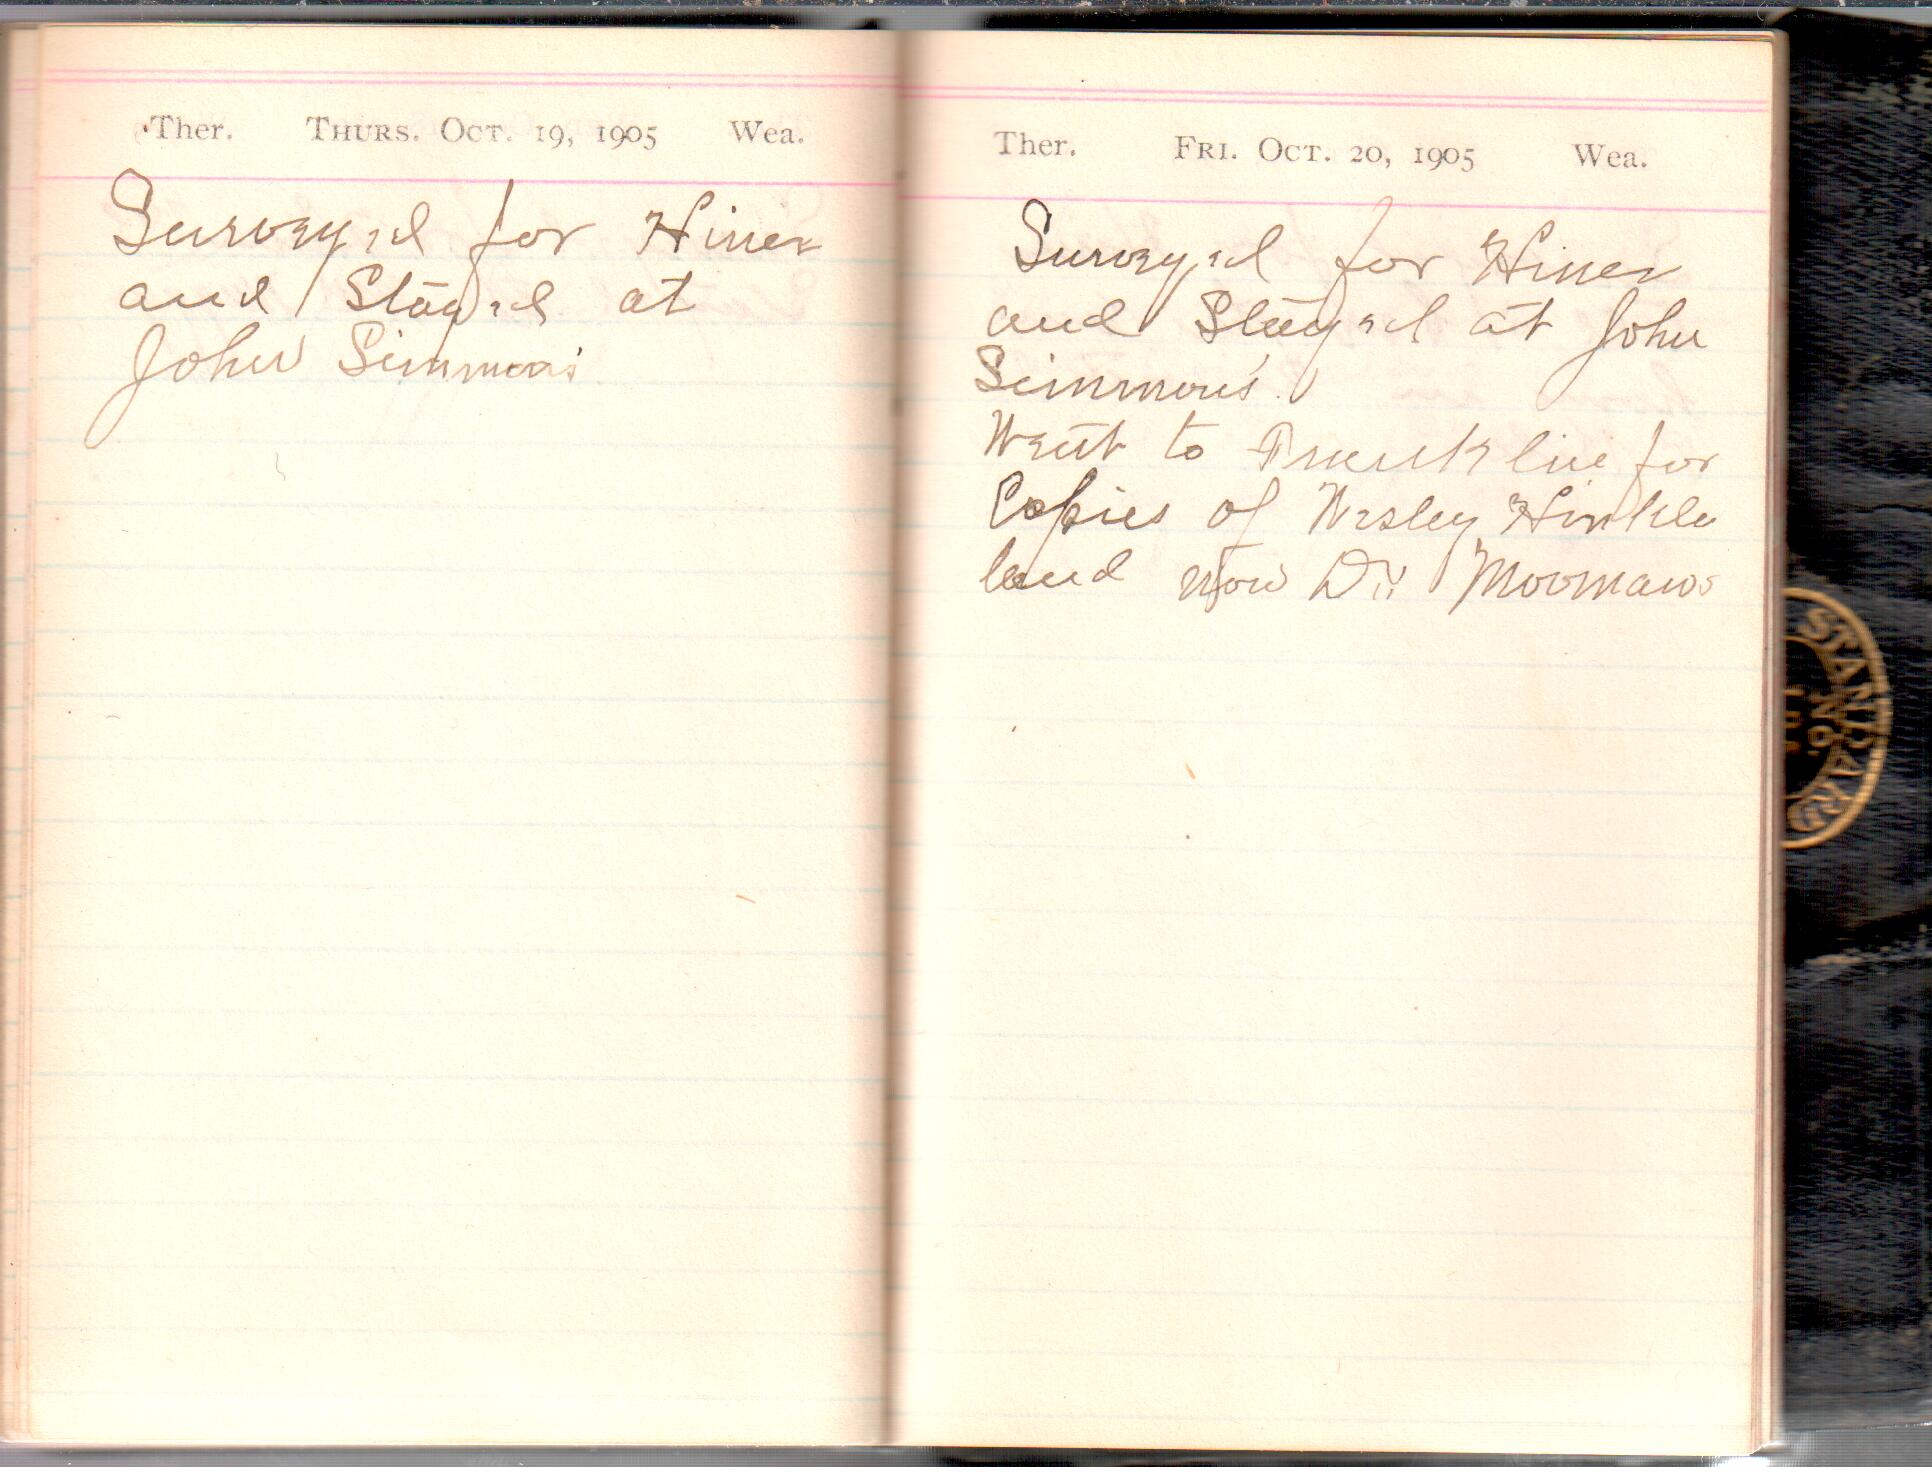 Ther. Thurs. Oct. 19, 1905 Wea.
Surveyed for Hiner
and Stayed at
John Simmons'
Ther. Fri. Oct. 20, 1905 Wea.
Surveyed for Hiner
and Stayed at John
Simmons'.
Went to Franklin for
Copies of Wesley Hinkle
land now Dr. Moomaws
STANDARD
NO.